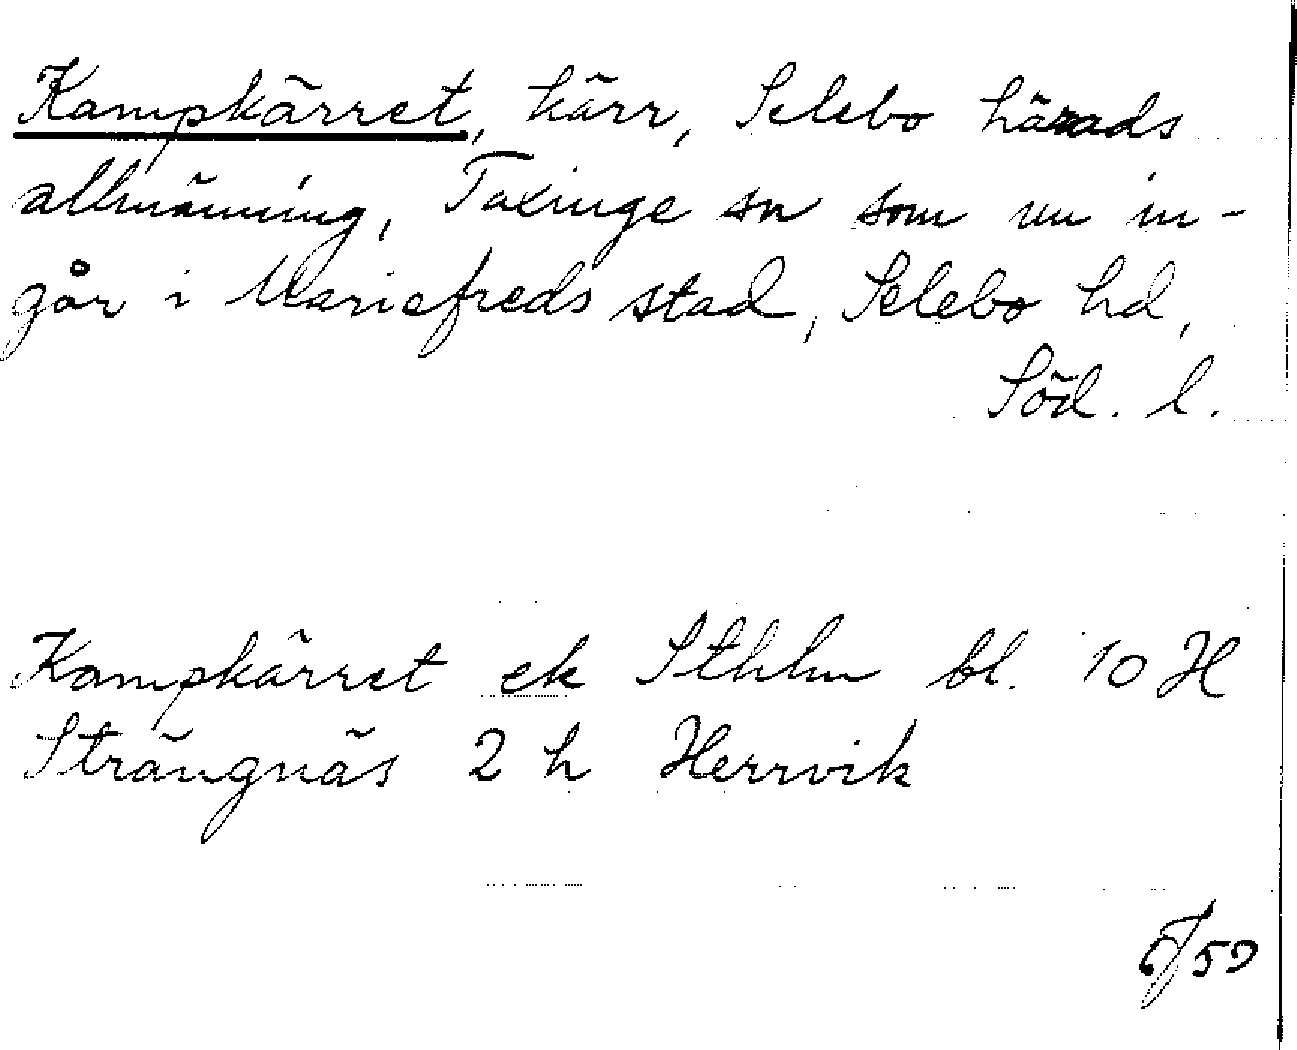 Kampkärret, kärr, Selebo härads
allmänning, Taxinge sn som nu in-
går i Mariefreds stad, Selebo hd,
Söd. l.
Kampkärret ek Sthlm bl. 10 H
Strängnäs 2 h Herrvik